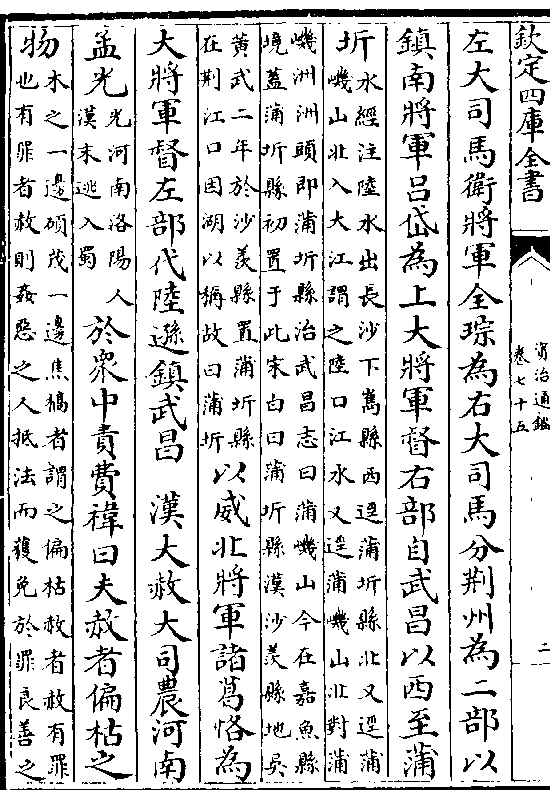 欽定四庫全書
資治通鑑
卷七十五
二
左大司馬衛將軍全琮為右大司馬分荆州為二部以
鎮南將軍吕岱為上大將軍督右部自武昌以西至蒲
圻
水經注陸水出長沙下雋縣西逕蒲圻縣北又逕蒲
磯山北入大江謂之陸口江水又逕蒲磯山北對蒲
磯洲洲頭即蒲圻縣治武昌志曰蒲磯山今在嘉魚縣
境蓋蒲圻縣初置于此宋白曰蒲圻縣漢沙羡縣地吳
黄武二年於沙羡縣置蒲圻縣
在荆江口因湖以稱故曰蒲圻
以威北將軍諸葛恪為
大將軍督左部代陸遜鎮武昌　漢大赦大司農河南
孟光
光河南洛陽人
漢末逃入蜀
於衆中責費禕曰夫赦者偏枯之
物
木之一邊碩茂一邊焦槁者謂之偏枯赦者赦有罪
也有罪者赦則姦惡之人抵法而獲免於罪良善之